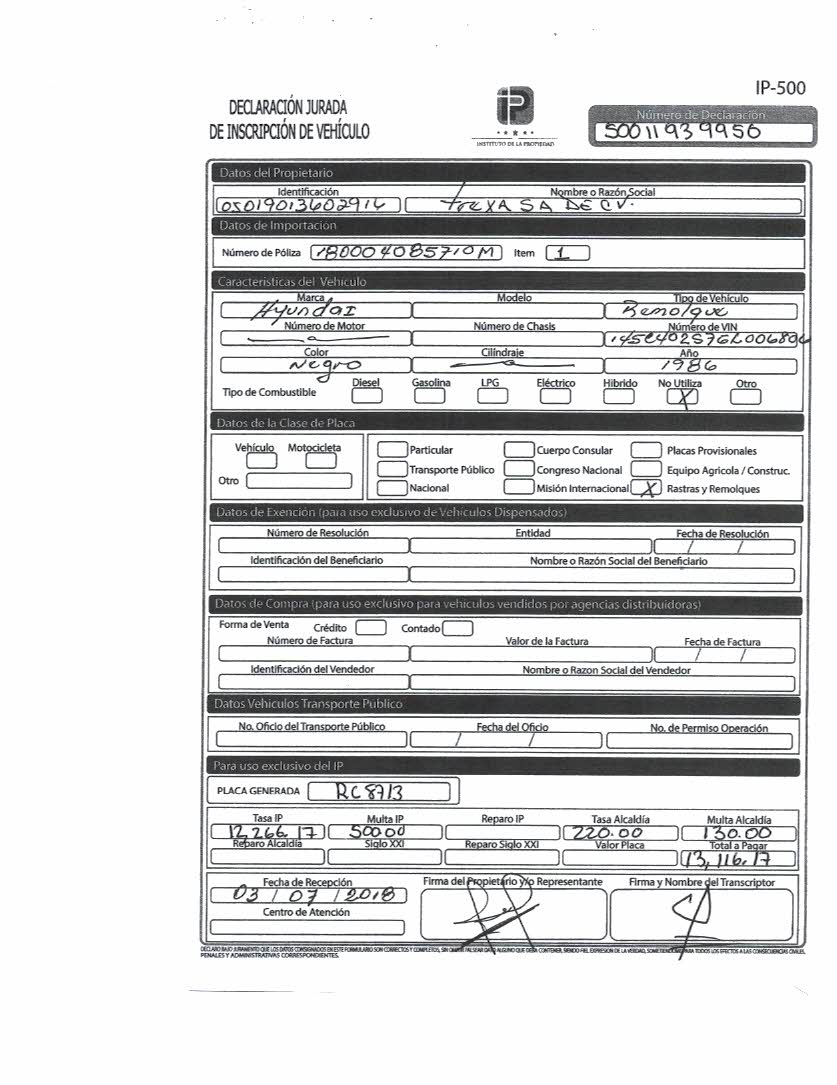 IP-500
DECLARACIÓN JURADA
DE INSCRIPCIÓN DE VEHÍCULO
iP
INSTITUTO DE LA PROPIEDAD
Número de Declaración
50011939956
Datos del Propietario
Identificación Nombre o Razón Social
TreXA SA DE CV.
Datos de Importación
Número de Póliza Item 1
Caracteristicas del Vehículo
Marca Modelo Tipo de Vehículo
HyundaI Remolque
Número de Motor Número de Chasis Número de VIN
Color Cilíndraje Año
Negro 1986
Tipo de Combustible Diesel Gasolina LPG Eléctrico Hibrido No Utiliza Otro
X
Datos de la Clase de Placa
Vehículo Motocicleta
Otro
Particular Cuerpo Consular Placas Provisionales
Transporte Público Congreso Nacional Equipo Agricola / Construc.
Nacional Misión Internacional X Rastras y Remolques
Datos de Exención (para uso exclusivo de Vehículos Dispensados)
Número de Resolución Entidad Fecha de Resolución
/ /
Identificación del Beneficiario Nombre o Razón Social del Beneficiario
Datos de Compra (para uso exclusivo para vehiculos vendidos por agencias distribuidoras)
Forma de Venta Crédito Contado
Número de Factura Valor de la Factura Fecha de Factura
/ /
Identificación del Vendedor Nombre o Razon Social del Vendedor
Datos Vehiculos Transporte Público
No. Oficio del Transporte Público Fecha del Oficio No. de Permiso Operación
/ /
Para uso exclusivo del IP
PLACA GENERADA RC8713
Tasa IP Multa IP Reparo IP Tasa Alcaldía Multa Alcaldía
12,266.17 500.00 220.00 130.00
Reparo Alcaldía Siglo XXI Reparo Siglo XXI Valor Placa Total a Pagar
13,116.17
Fecha de Recepción Firma del Propietario y/o Representante Firma y Nombre del Transcriptor
03 / 07 / 2018
Centro de Atención
DECLARO BAJO JURAMENTO QUE LOS DATOS CONSIGNADOS EN ESTE FORMULARIO SON CORRECTOS Y COMPLETOS, SIN OMITIR FALSEAR DATO ALGUNO QUE DEBA CONTENER, SIENDO FIEL EXPRESION DE LA VERDAD, SOMETIENDOME PARA TODOS LOS EFECTOS A LAS CONSECUENCIAS CIVILES,
PENALES Y ADMINISTRATIVAS CORRESPONDIENTES.